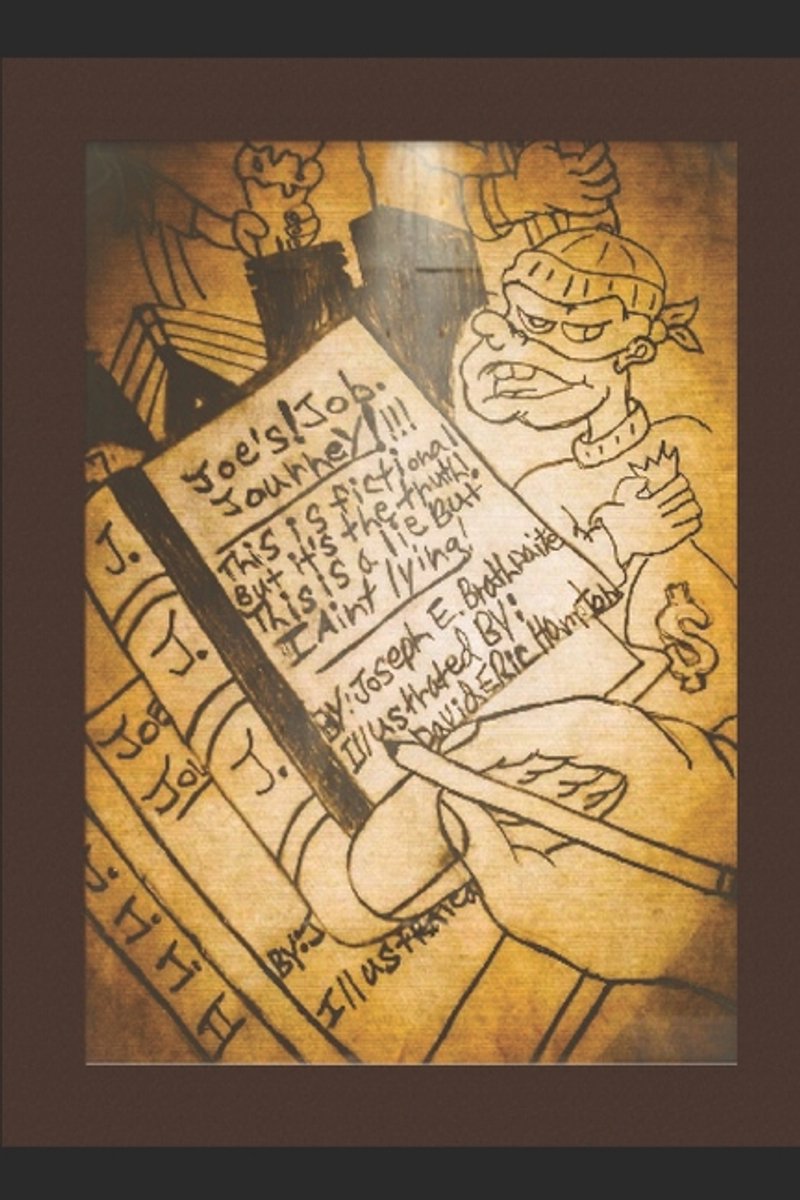 Joe's! Job.
Journey!!!!
This is fictional
But it's the truth!
This is a lie But
I Aint lying!
BY: Joseph E. Brathwaite
Illustrated BY:
David, ERic Hampton
J.
J.
J.
Joe
BY: J
Illustrated